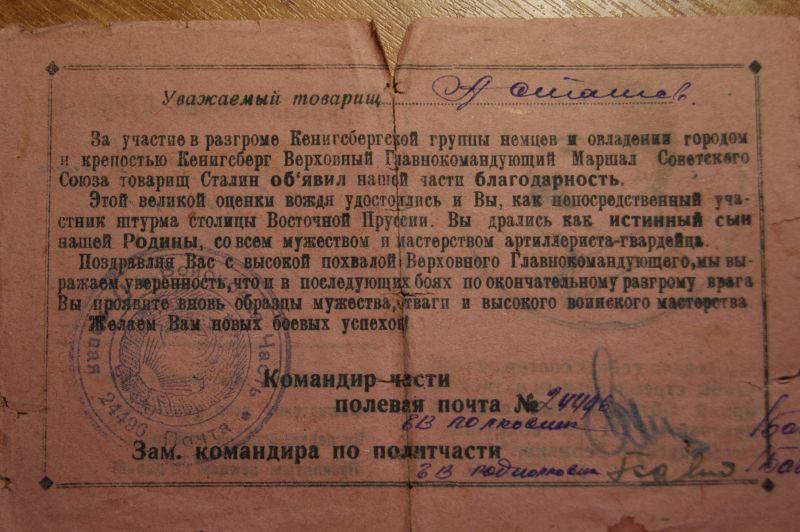 Уважаемый товарищ Асташев.
За участие в разгроме Кенигсбергской группы немцев и овладении городом
и крепостью Кенигсберг Верховный Главнокомандующий Маршал Советского
Союза товарищ Сталин об'явил нашей части благодарность.
Этой великой оценки вождя удостоились и Вы, как непосредственный уча-
стник штурма столицы Восточной Пруссии. Вы дрались как истинный сын
нашей Родины, со всем мужеством и мастерством артиллериста-гвардейца.
Поздравляя Вас с высокой похвалой Верховного Главнокомандующего, мы вы-
ражаем уверенность, что и в последующих боях по окончательному разгрому врага
Вы проявите вновь образцы мужества, отваги и высокого воинского мастерства
Желаем Вам новых боевых успехов!
Полевая Почта 24496 Часть
Командир части
полевая почта № 24496
гв полковник
Зам. командира по политчасти
гв подполковник